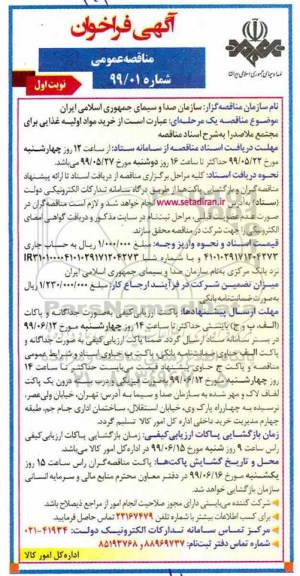 آگهی فراخوان
مناقصه عمومی
شماره ۹۹/۰۱
نوبت اول
نام سازمان مناقصه گزار: سازمان صدا و سیمای جمهوری اسلامی ایران
موضوع مناقصه یک مرحله‌ای: عبارت است از خرید مواد اولیه غذایی برای
مجتمع ملاصدرا به‌شرح اسناد مناقصه
مهلت دریافت اسناد مناقصه از سامانه ستاد: از ساعت ۱۲ روز چهارشنبه
مورخ ۹۹/۰۵/۲۲ حداکثر تا ساعت ۱۶ روز دوشنبه مورخ ۹۹/۰۵/۲۷ می‌باشد.
نحوه دریافت اسناد: کلیه مراحل برگزاری مناقصه از دریافت اسناد تا ارائه پیشنهاد
مناقصه‌گران و بازگشایی پاکت‌ها از طریق درگاه سامانه تدارکات الکترونیکی دولت
(ستاد) به آدرس www.setadiran.ir انجام خواهد شد و لازم است مناقصه‌گران در
صورت عدم عضویت قبلی، مراحل ثبت‌نام در سایت مذکور و دریافت گواهی امضای
الکترونیکی را جهت شرکت در مناقصه محقق سازند.
قیمت اسناد و نحوه واریز وجه: مبلغ ۱/۰۰۰/۰۰۰ ریال به حساب جاری
۴۱۰۱۰۲۹۱۷۱۲۰۴۲۷۳ و با شماره شبا
نزد بانک مرکزی به‌نام سازمان صدا و سیمای جمهوری اسلامی ایران
میزان تضمین شرکت در فرآیند ارجاع کار: مبلغ ۱/۲۳۰/۰۰۰/۰۰۰ ریال
به‌صورت ضمانت‌نامه بانکی
مهلت ارسال پیشنهادها: پاکت ارزیابی کیفی به‌صورت جداگانه و پاکت
(الف، ب و ج) بایستی حداکثر تا ساعت ۱۴ روز چهارشنبه مورخ ۹۹/۰۶/۱۲
در بستر سامانه ستاد ارسال گردد. ضمناً پاکت ارزیابی کیفی به صورت جداگانه و
پاکت الف حاوی ضمانتنامه بانکی، پاکت ب حاوی اسناد و شرایط عمومی
مناقصه و پاکت ج حاوی پیشنهاد قیمت می‌بایست حداکثر تا ساعت ۱۴
روز چهارشنبه مورخ ۹۹/۰۶/۱۲ به‌صورت فیزیکی و درب بسته در درون یک پاکت
لفاف لاک و مهر شده به سازمان صدا و سیما به آدرس: تهران، خیابان ولی‌عصر،
نرسیده به چهارراه پارک وی، خیابان استقلال، ساختمان اداری جام جم، طبقه
چهارم مدیریت خرید داخلی اداره کل امور کالا تسلیم گردد.
زمان بازگشایی پاکات ارزیابی‌کیفی: زمان بازگشایی پاکات ارزیابی کیفی
راس ساعت ۹ روز شنبه مورخ ۹۹/۰۶/۱۵ در اداره کل امور کالا می‌باشد.
محل و تاریخ گشایش پاکت‌ها: پاکت مناقصه‌گران راس ساعت ۱۵ روز
یکشنبه مورخ ۹۹/۰۶/۱۶ در دفتر معاون محترم منابع مالی و سرمایه انسانی
سازمان بازگشایی خواهد شد.
شرکت کننده می‌بایستی دارای مجوز صلاحیت انجام امور از مراجع ذیصلاح باشد.
برای کسب اطلاعات بیشتر با شماره تلفن ۲۲۱۶۷۴۷۹ تماس حاصل فرمایید.
مرکز تماس سامانه تدارکات الکترونیک دولت: ۴۱۹۳۴-۰۲۱
شماره تماس دفتر ثبت‌نام: ۸۸۹۶۹۷۳۷ و ۸۵۱۹۳۷۶۸
اداره کل امور کالا